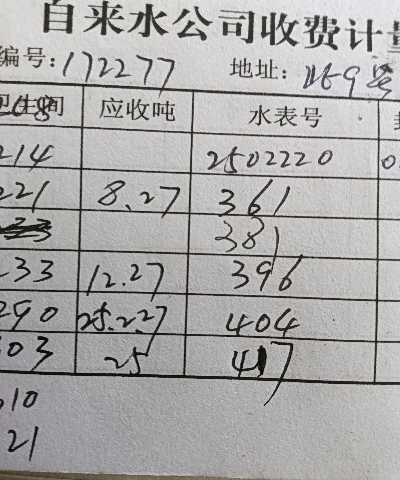 自来水公司收费计量
编号:172277 地址: 9号
卫生间 应收吨 水表号
214 2502220
221 8.27 361
381
233 12.27 396
290 25.2.27 404
303 25 417
310
21